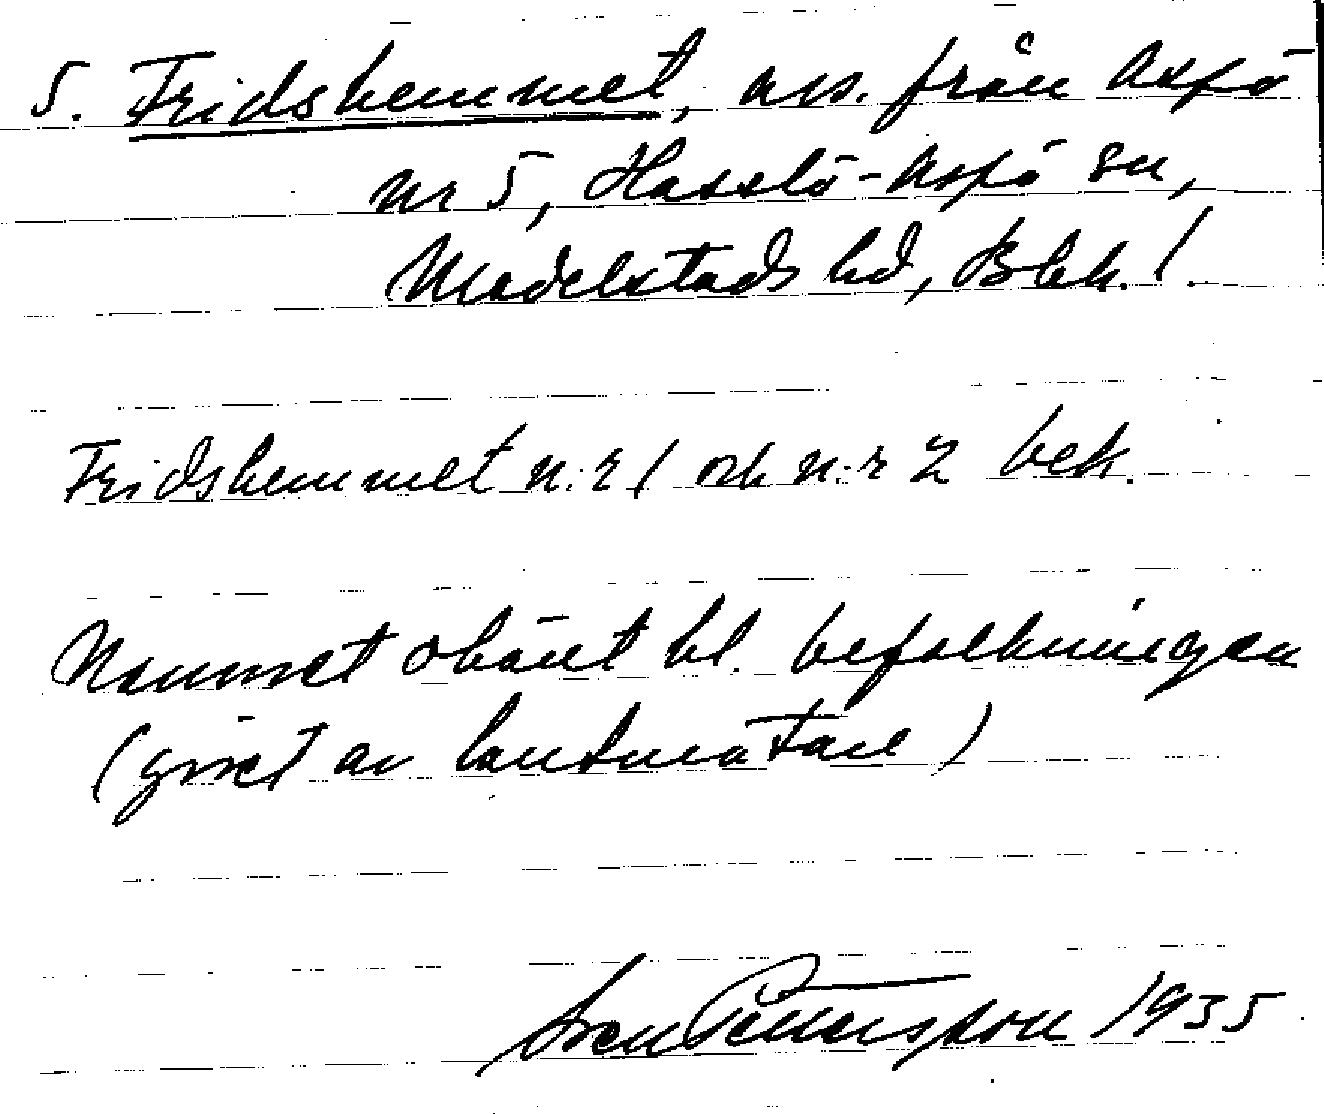 5. Fridshemmet, avs. från Aspö
nr 5, Hasslö-Aspö sn,
Medelstads hd, Blek. l.
Fridshemmet n:r 1 och n:r 2 bek.
Namnet okänt bl. befolkningen
(givet av lantmätare)
Sven Pettersson 1935